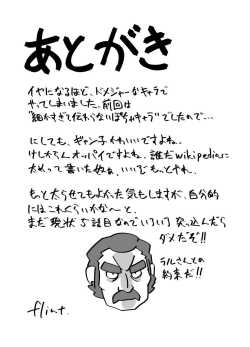 あとがき
イヤになるほど、ドメジャーなキャラで
やってしまいました。前回は
"細かすぎて伝わらないぽちゃキャラ"でしたので…
にしても、ギャン子かわいいですよね。
けしからんオッパイですよね。誰だwikipediaに
ためって書いた奴ぁ、いいぞもっとやれ。
もっと太らせてもよかった気もしますが、自分的
にはこれくらいかな〜と。
まだ現状5話目なのでいろいろ突っ込んだら
ダメだぞ!!
ラルさんとの
約束だ!!
flint.